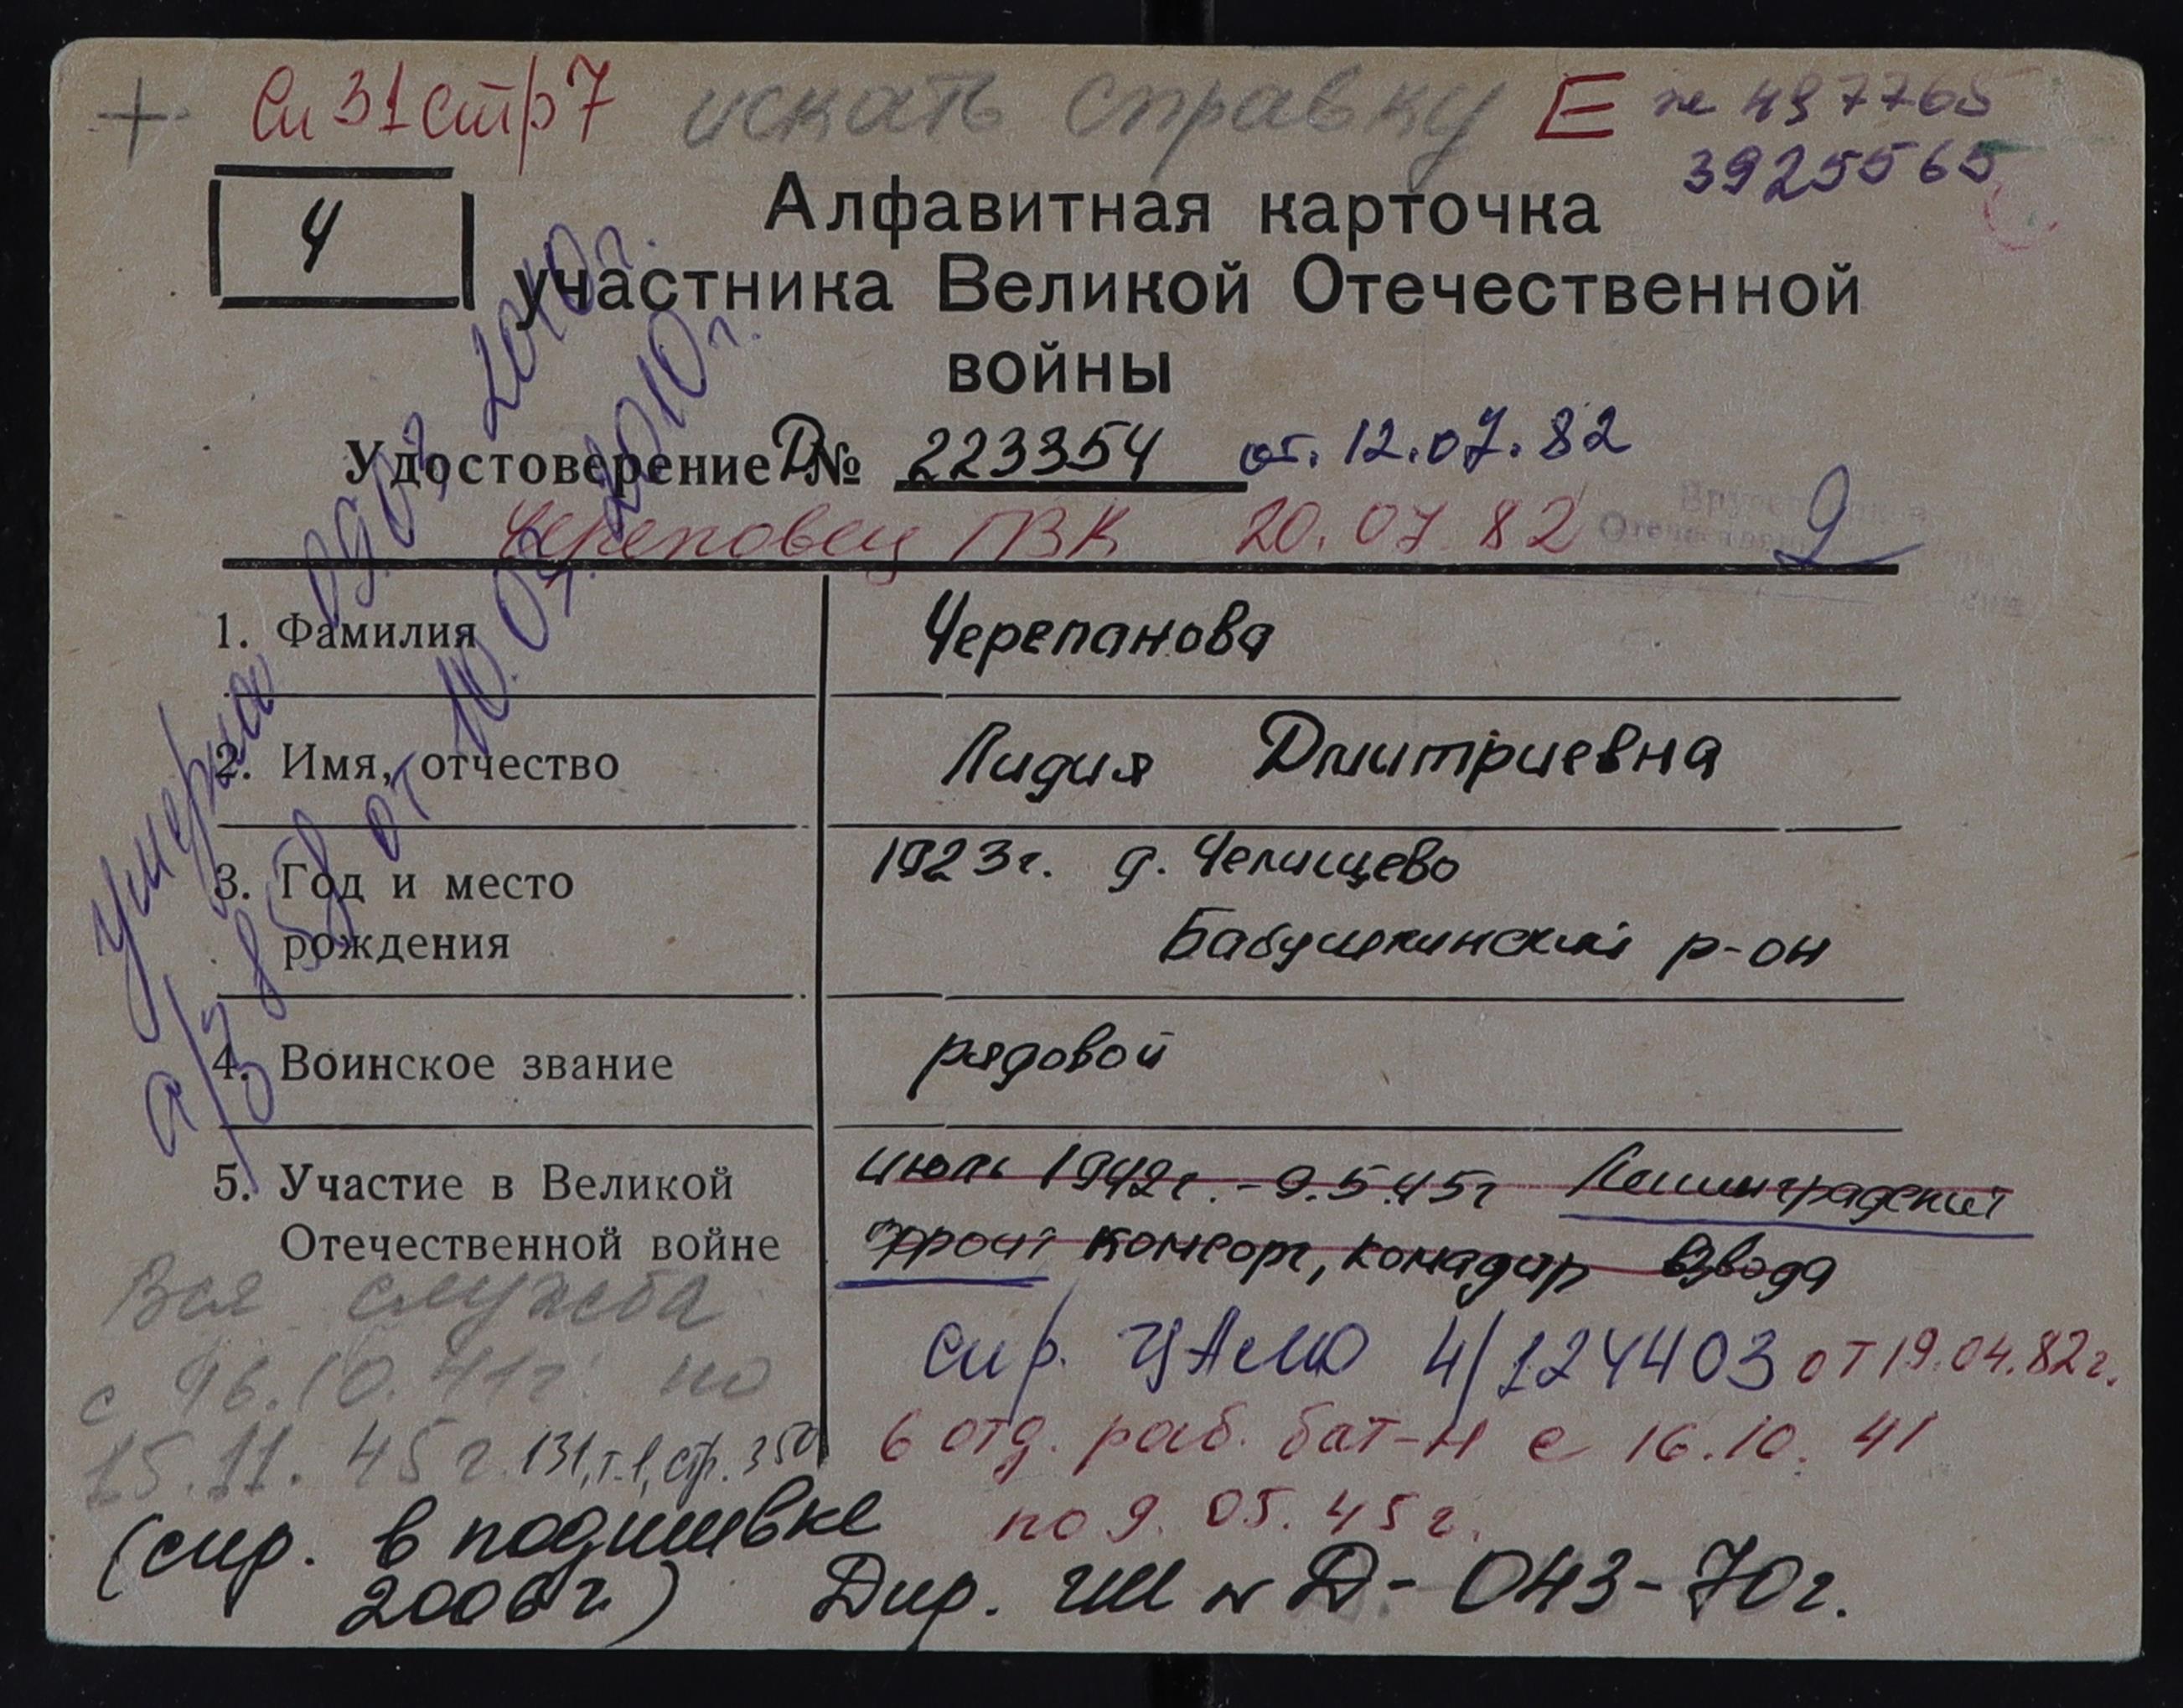 Сп 31 стр 7 искать справку Е № 497765
3925565
Ч
Алфавитная карточка
участника Великой Отечественной
войны
Удостоверение Д № 223354 от. 12.07.82
Череповец ГВК 20.07.82
1. Фамилия Черепанова
2. Имя, отчество Лидия Дмитриевна
3. Год и место 1923г. д. Челищево
рождения Бабушкинский р-он
4. Воинское звание рядовой
5. Участие в Великой июль 1942г. - 9.5.45г Ленинградский
Отечественной войне фронт комсорг, командир взвода
Вся служба
с 16.10.41г. по
15.11.45г. 131, т.1, стр. 350
(спр. в подшивке
2006г.)
спр. ЦАМО 4/124403 от 19.04.82г.
6 отд. раб. бат-н с 16.10.41
по 9.05.45г.
Дир. ГШ № Д-043-70г.
умерла 09.07.2010г.
а/з 858 от 10.07.2010г.